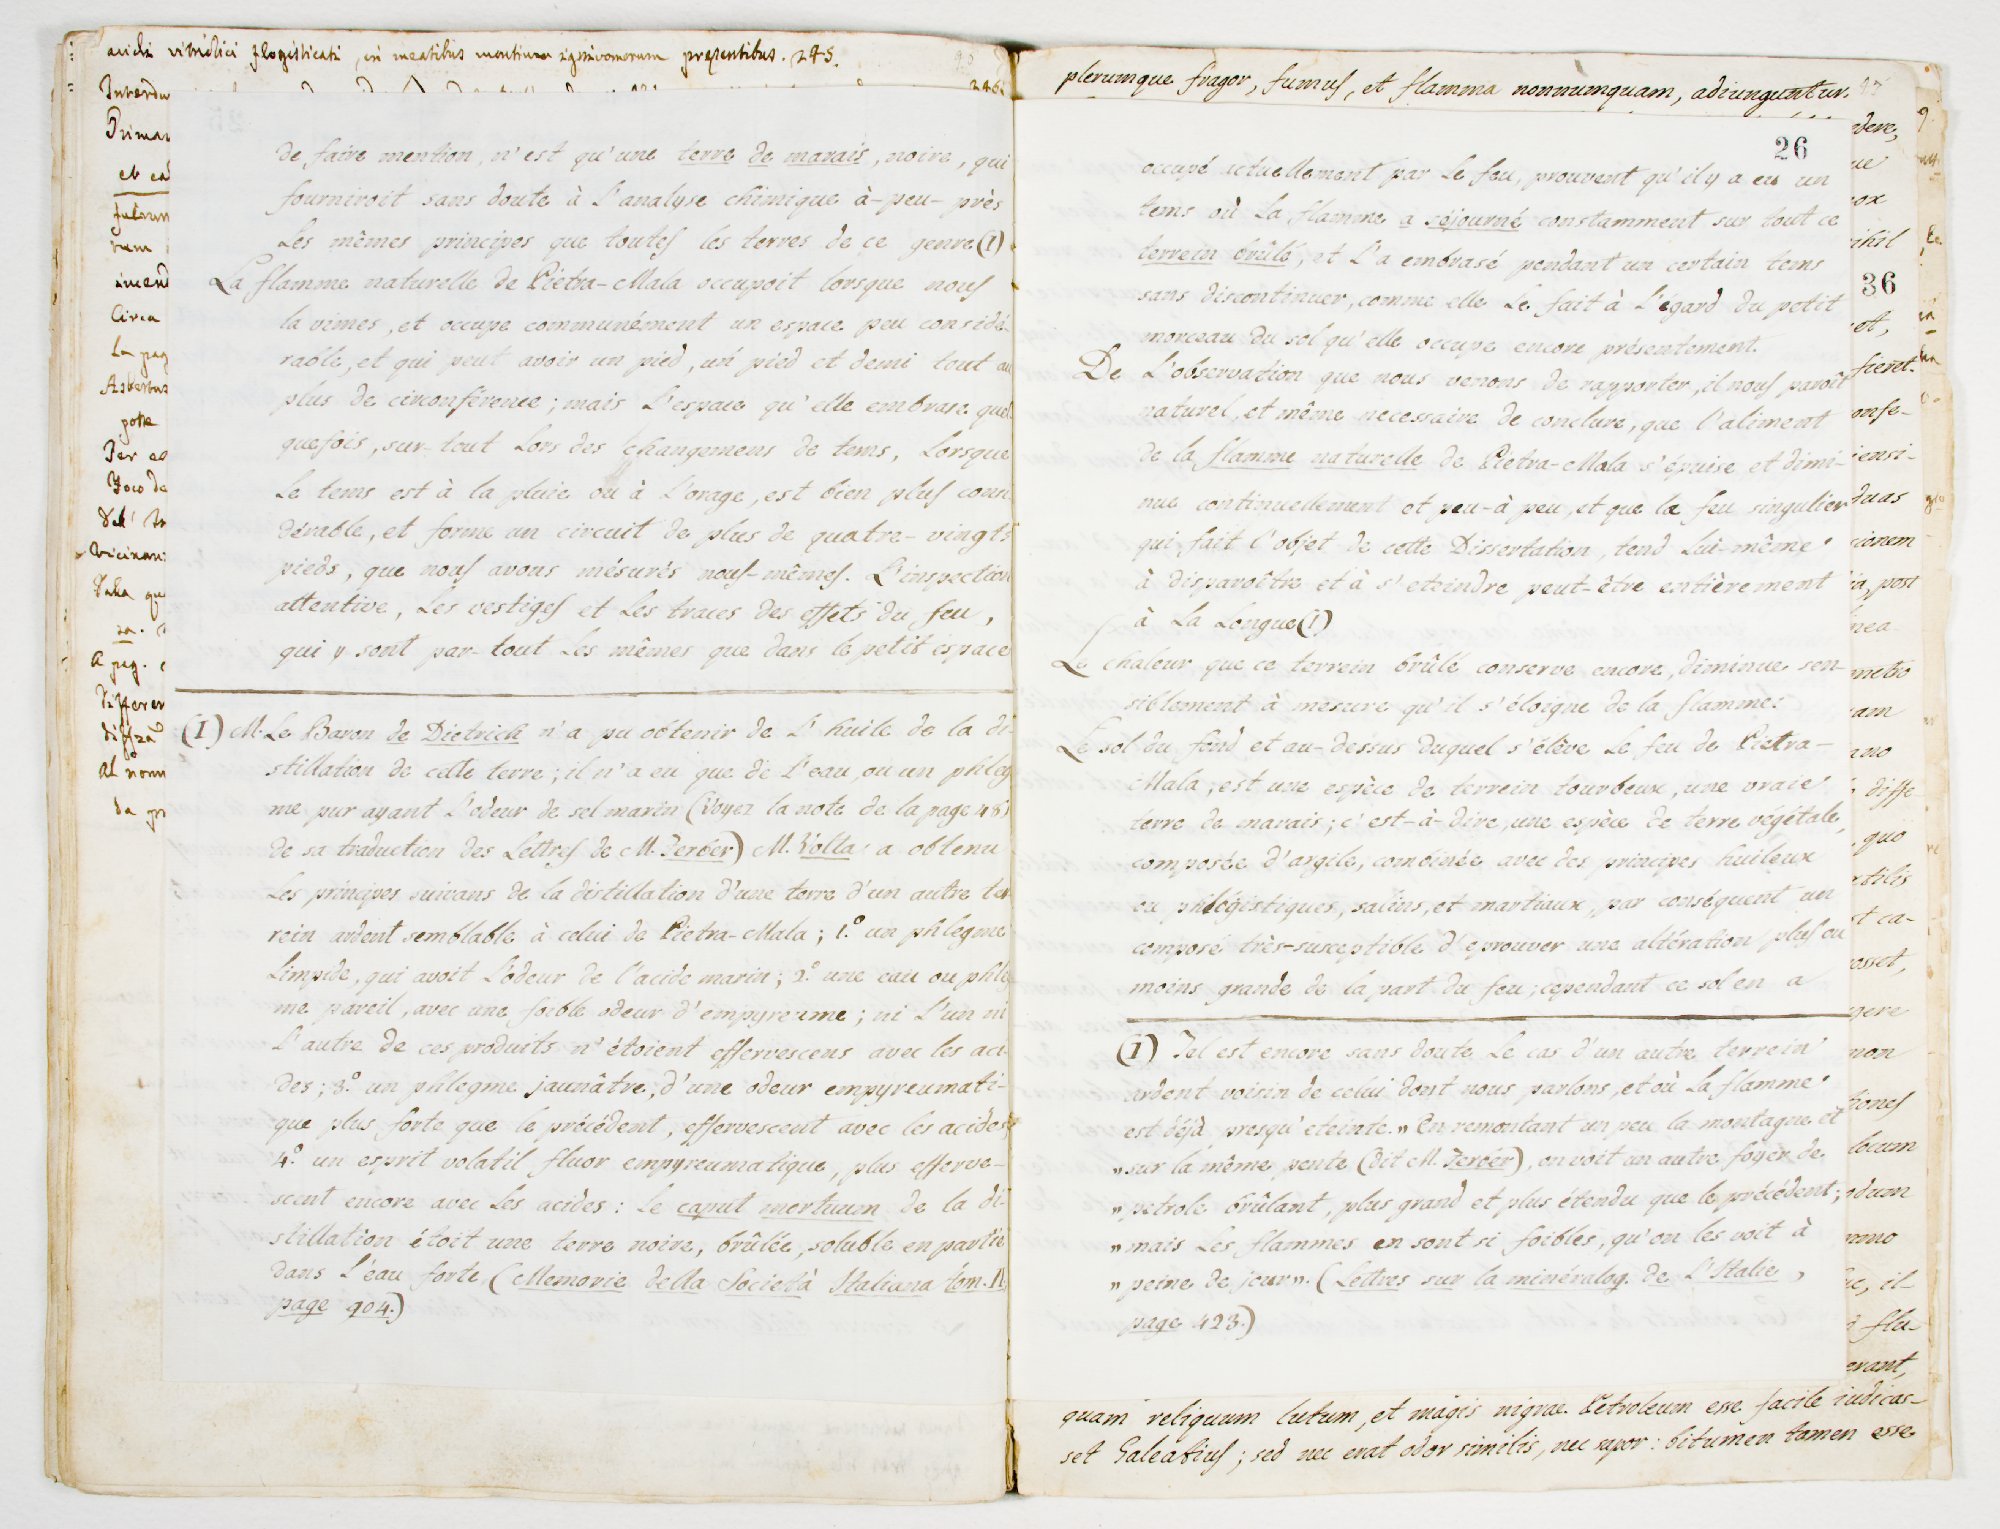 acidi vitriolici flogisticati, in meatibus montium ignivomorum praesentibus. 245.
246.
de faire mention, n'est qu'une terre de marais, noire, qui
fourniroit sans doute à L'analyse chimique à-peu-près
Les mêmes principes que toutes les terres de ce genre (1)
La flamme naturelle de Pietra-Mala occupoit lorsque nous
la vimes, et occupe communément un espace peu considé-
rable, et qui peut avoir un pied, un pied et demi tout au
plus de circonférence; mais L'espace qu'elle embrase quel
quefois, sur-tout Lors des changemens de tems, Lorsque
Le tems est à la pluie ou à L'orage, est bien plus consi
dérable, et forme un circuit de plus de quatre-vingts
pieds, que nous avons mésurés nous-mêmes. L'inspection
attentive, Les vestiges et Les traces des effets du feu,
qui y sont par-tout Les mêmes que dans le petit espace
(1) M. Le Baron de Dietrich n'a pu obtenir de L'huile de la di-
stillation de cette terre; il n'a eu que de L'eau, ou un phleg
me pur ayant L'odeur de sel marin (Voyez la note de la page 48)
de sa traduction des Lettres de M. Ferber) M. Volta a obtenu
Les principes suivans de la distillation d'une terre d'un autre ter
rein ardent semblable à celui de Pietra-Mala; 1.° un phlegme
Limpide, qui avoit L'odeur de l'acide marin; 2.° une eau ou phleg
me pareil, avec une foible odeur d'empyreume; ni L'un ni
L'autre de ces produits n'étoient effervescens avec les aci-
des; 3.° un phlegme jaunâtre, d'une odeur empyreumati-
que plus forte que le précédent, effervescent avec les acides;
4.° un esprit volatil fluor empyreumatique, plus efferve-
scent encore avec Les acides: Le caput mortuum de la di-
stillation étoit une terre noire, brûlée, soluble en partie
dans L'eau forte (Memorie della Società Italiana tom. II
page 904.)
Interdu
Primar
et ea
rum
incend
Circa
La pag
Asbestus
pote
Per
Foco de
Vicinan
A pag.
Differen
Al nom
da
plerumque fragor, fumus, et flamma nonnumquam, adiunguntur.
26
occupé actuellement par Le feu, prouvent qu'il y a eu un
tems où La flamme a séjourné constamment sur tout ce
terrein brûlé, et L'a embrasé pendant un certain tems
sans discontinuer, comme elle Le fait à L'égard du petit
morceau du sol qu'elle occupe encore présentement.
De L'observation que nous venons de rapporter, il nous paroît
naturel, et même necessaire de conclure, que l'aliment
de la flamme naturelle de Pietra-Mala s'épuise et dimi-
nue continuellement et peu-à peu, et que le feu singulier
qui fait l'objet de cette Dissertation, tend Lui-même
à disparoître et à s'eteindre peut-être entièrement
à La Longue (1)
La chaleur que ce terrein brûlé conserve encore, diminue sen-
siblement à mesure qu'il s'éloigne de la flamme:
Le sol du fond et au-dessus duquel s'élève Le feu de Pietra-
Mala; est une espèce de terrein tourbeux, une vraie
terre de marais; c'est-à-dire, une espèce de terre végétale,
composée d'argile, combinée avec des principes huileux
ou phlogistiques, salins, et martiaux, par conséquent un
composé très-susceptible d'eprouver une altération plus ou
moins grande de la part du feu; cependant ce sol en a
(1) Tel est encore sans doute Le cas d'un autre terrein
ardent voisin de celui dont nous parlons, et où La flamme
est déjà presqu'eteinte. „ En remontant un peu la montagne et
„ sur la même pente (dit M. Ferber), on voit un autre foyer de
„ pétrole brûlant, plus grand et plus étendu que le précédent;
„ mais Les flammes en sont si foibles, qu'on les voit à
„ peine de jour„. (Lettres sur la minéralog. de L'Italie,
page 423.)
36
adere,
ihil
et,
fieret.
onfe-
iensi-
duas
ionem
ia, post
nea
metro
am
ano
diffe
quo
st ca-
osset,
gere
non
locum
mmo
il-
flu-
erant,
quam reliquum lutum, et magis nigrae. Petroleum esse facile iudicas-
set Galeatius; sed nec erat odor similis, nec sapor: bitumen tamen esse